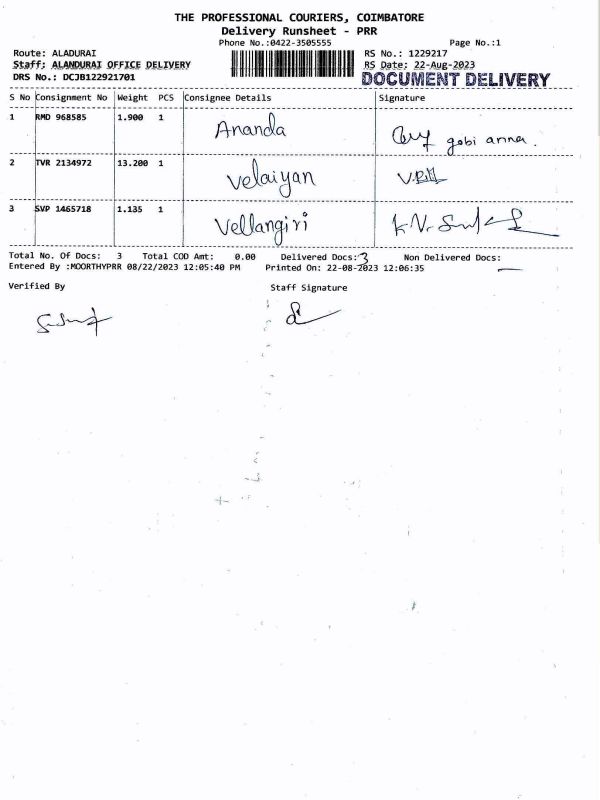 THE PROFESSIONAL COURIERS, COIMBATORE
Delivery Runsheet - PRR
Phone No.:0422-3505555 Page No.:1
Route: ALADURAI RS No.: 1229217
Staff: ALANDURAI OFFICE DELIVERY RS Date: 22-Aug-2023
DRS No.: DCJB122921701 DOCUMENT DELIVERY
S No Consignment No Weight PCS Consignee Details Signature
1 RMD 968585 1.900 1 Ananda gobi anna.
2 TVR 2134972 13.200 1 Velaiyan
3 SVP 1465718 1.135 1 Vellangiri
Total No. Of Docs: 3 Total COD Amt: 0.00 Delivered Docs: 3 Non Delivered Docs:
Entered By :MOORTHYPRR 08/22/2023 12:05:40 PM Printed On: 22-08-2023 12:06:35
Verified By Staff Signature